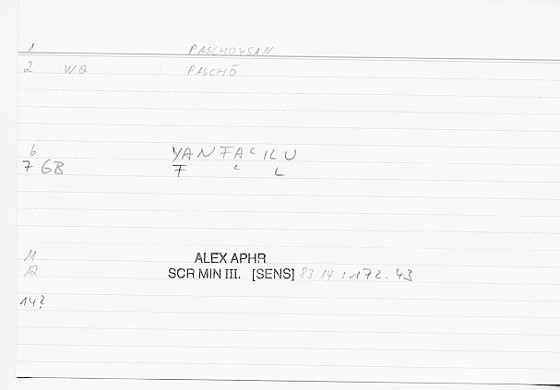 1 PASCHOYSAN
2 WQ PASCHŌ
6 YANFACILU
7 GB F C L
11 ALEX APHR
12 SCR MIN III. [SENS] 83 14 : 172.43
14?